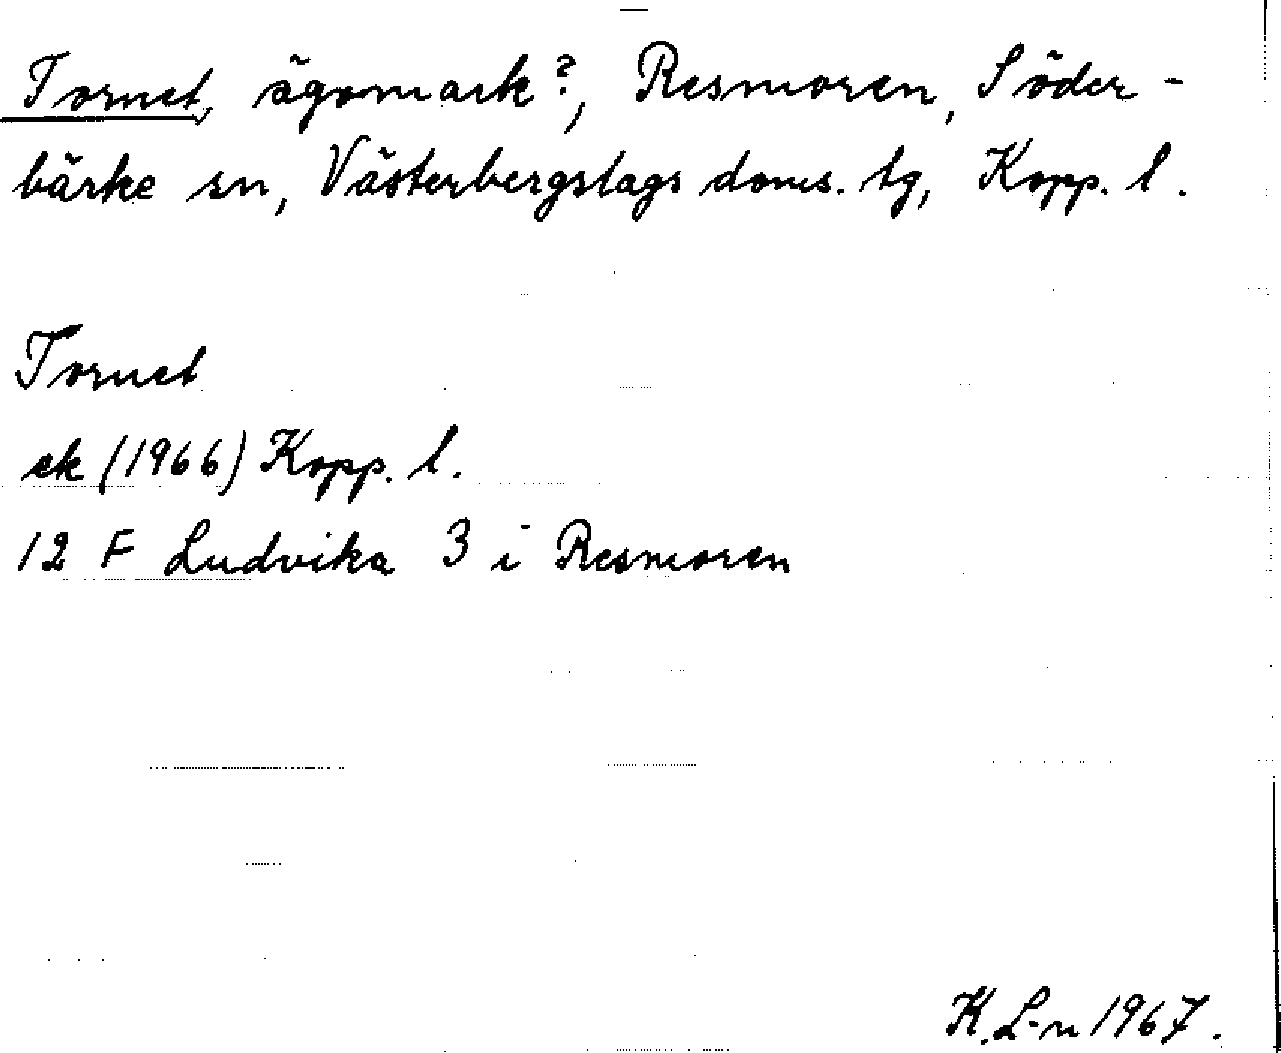 Tornet, ägomark?, Resmoren, Söder-
bärke sn, Västerbergslags doms. tg, Kopp. l.
Tornet
ek (1966) Kopp. l.
12 F Ludvika 3 i Resmoren
K. L-n 1967.